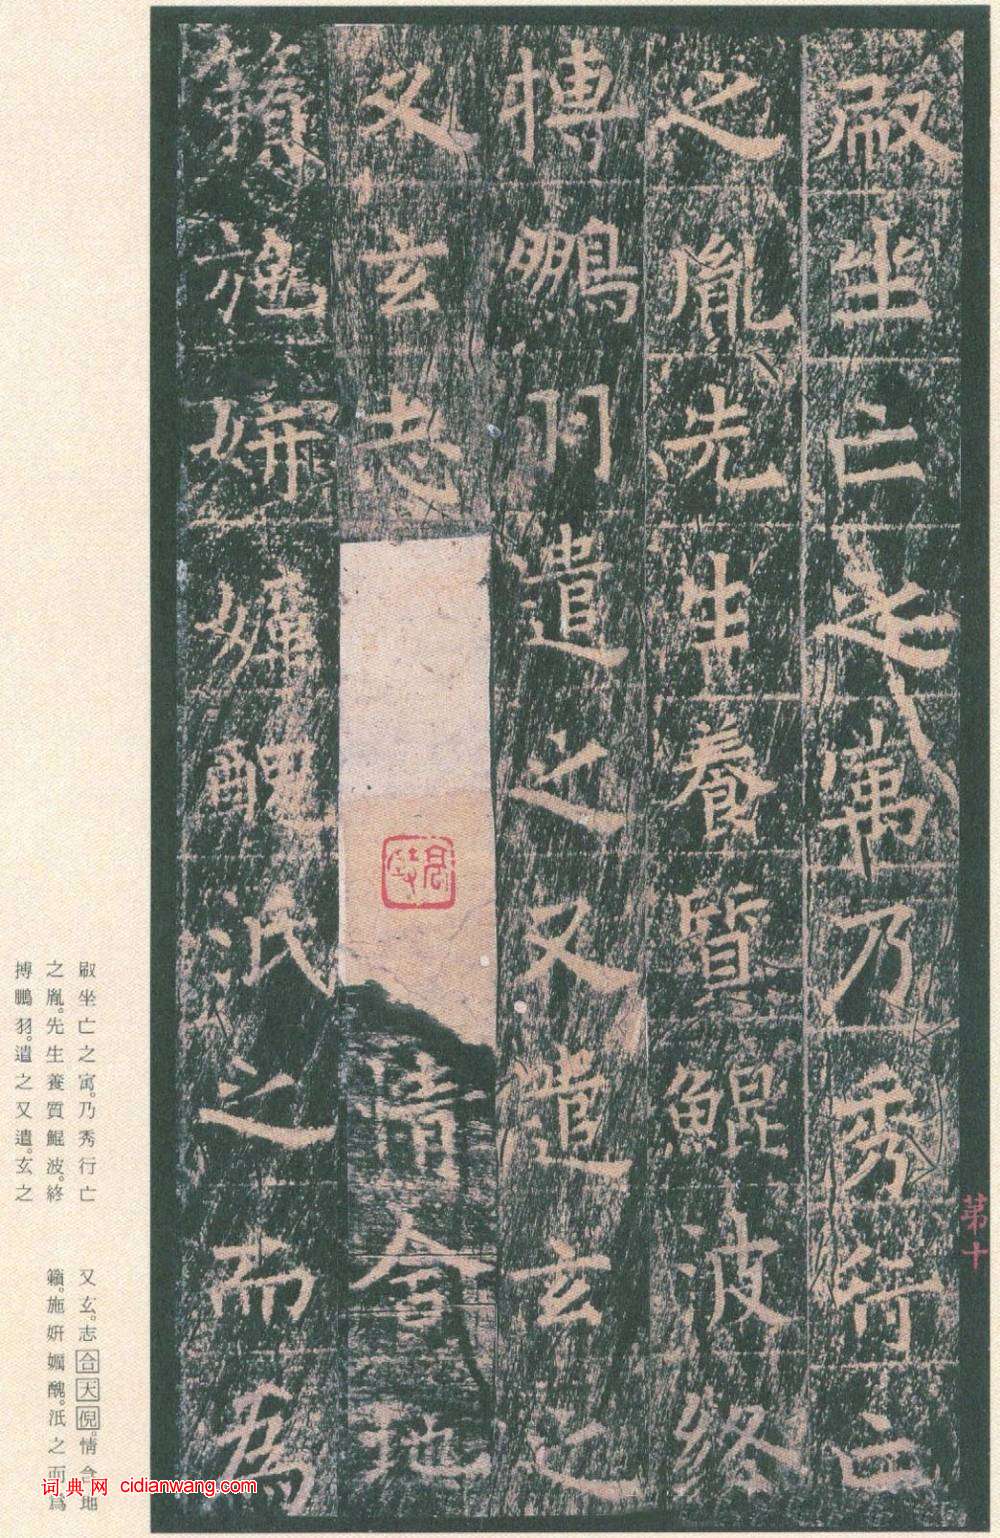 叡坐亡之寓乃秀行亡
之胤先生養質鯤波終
搏鵬羽遣之又遣玄之
又玄志情含地
籟施妍孋醜泯之而為
第十
叡坐亡之寓。乃秀行亡
之胤。先生養質鯤波。終
搏鵬羽。遣之又遣。玄之
又玄。志合天倪。情含地
籟。施妍孋醜。泯之而為
词典网 cidianwang.com